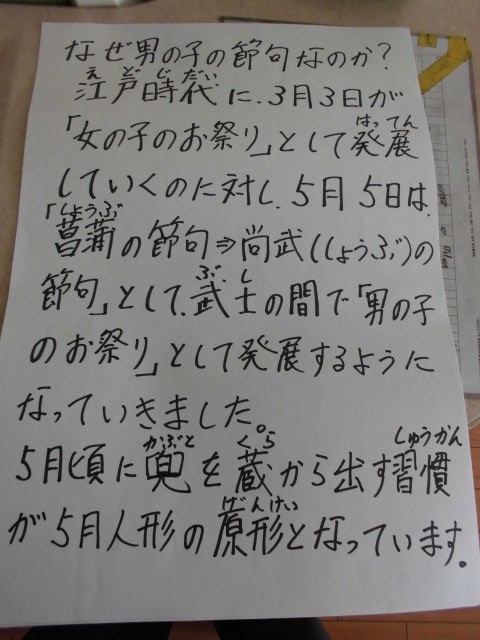 なぜ男の子の節句なのか？
えどじだい
江戸時代に、3月3日が
はってん
「女の子のお祭り」として発展
していくのに対し、5月5日は、
しょうぶ
「菖蒲の節句⇒尚武(しょうぶ)の
ぶし
節句」として、武士の間で「男の子
のお祭り」として発展するように
なっていきました。
かぶと くら しゅうかん
5月頃に兜を蔵から出す習慣
げんけい
が5月人形の原形となっています。